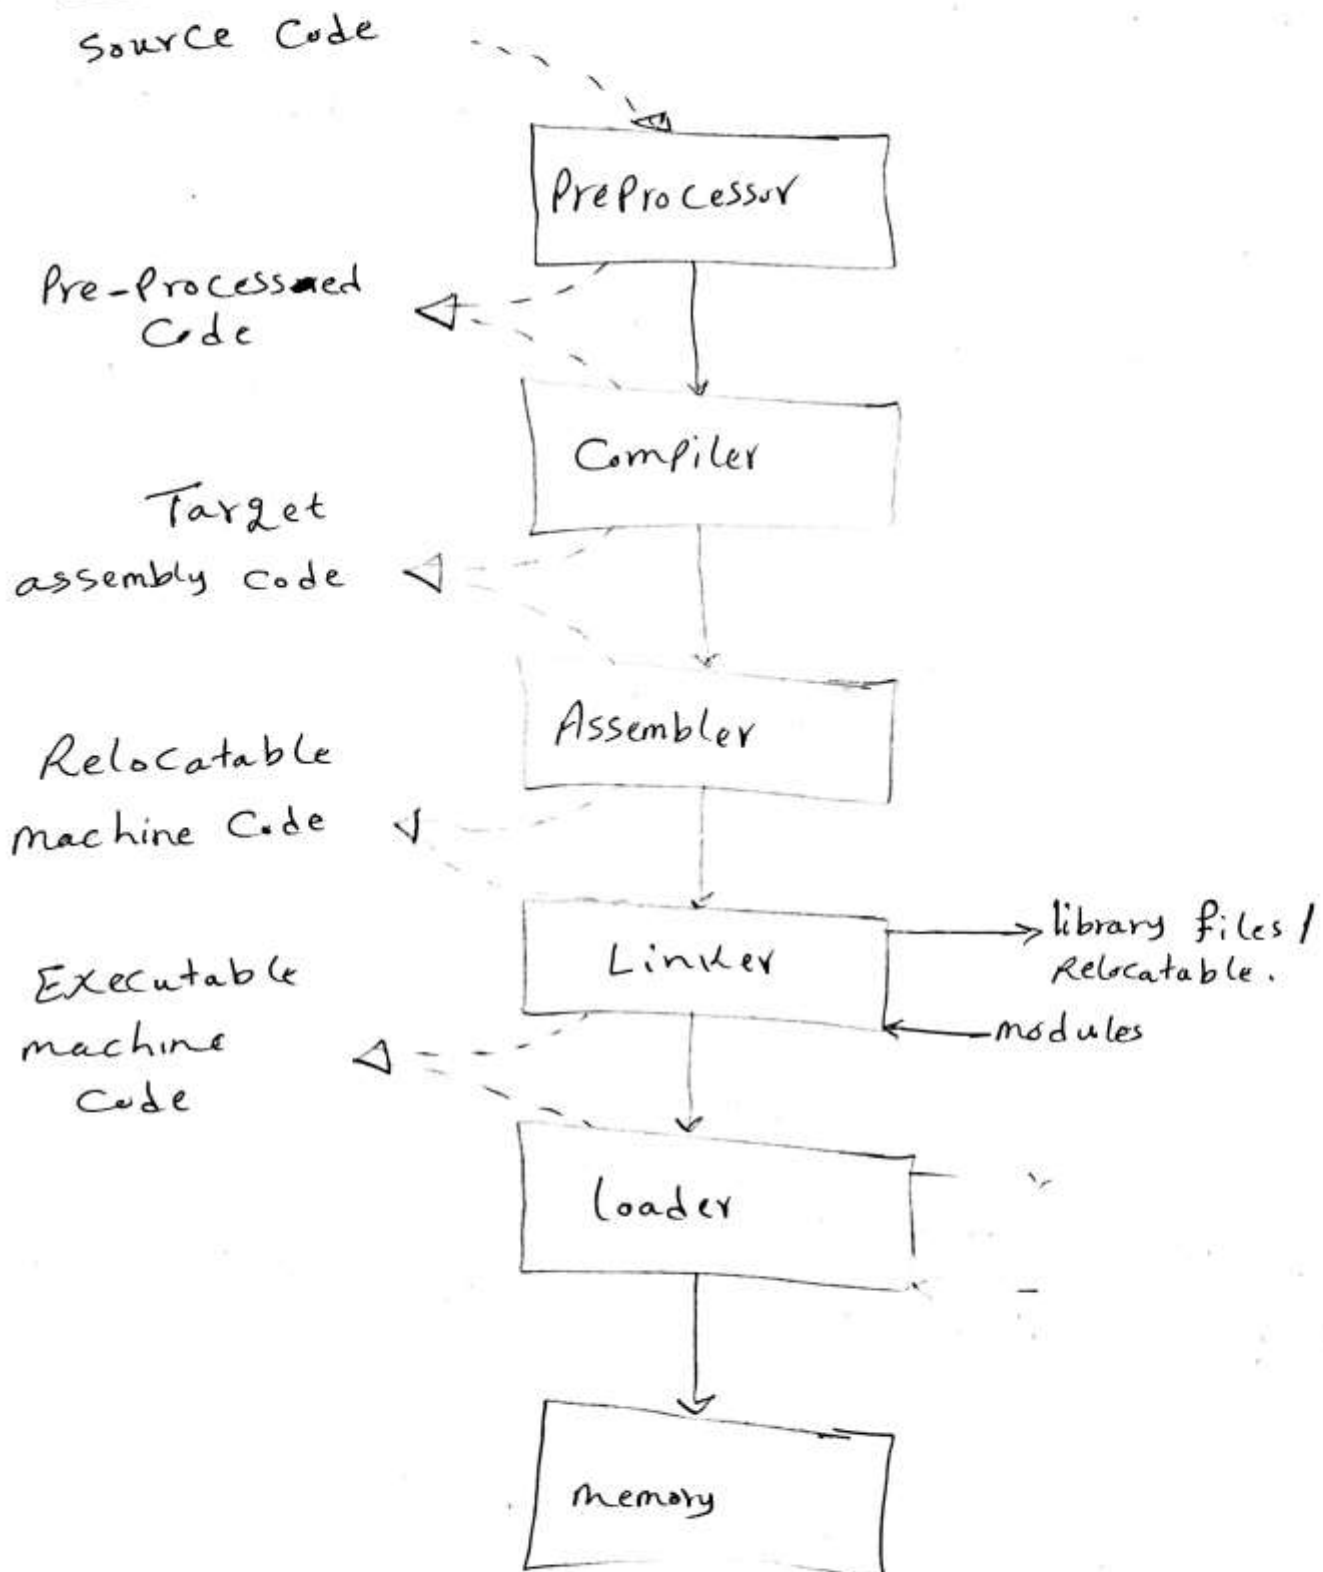 Source Code
PreProcessor
Pre-Processed
Code
Compiler
Target
assembly code
Assembler
Relocatable
machine Code
Linker
library files /
Relocatable.
modules
Executable
machine
Code
loader
memory